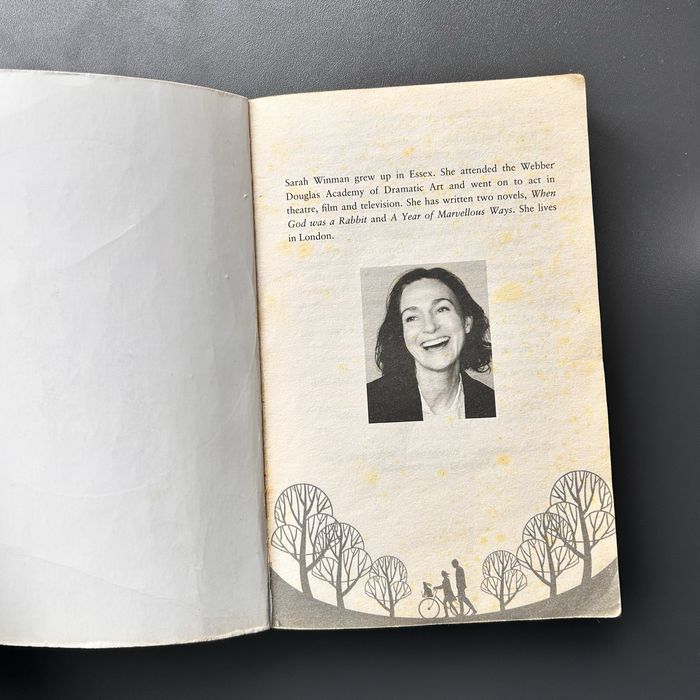 Sarah Winman grew up in Essex. She attended the Webber
Douglas Academy of Dramatic Art and went on to act in
theatre, film and television. She has written two novels, When
God was a Rabbit and A Year of Marvellous Ways. She lives
in London.